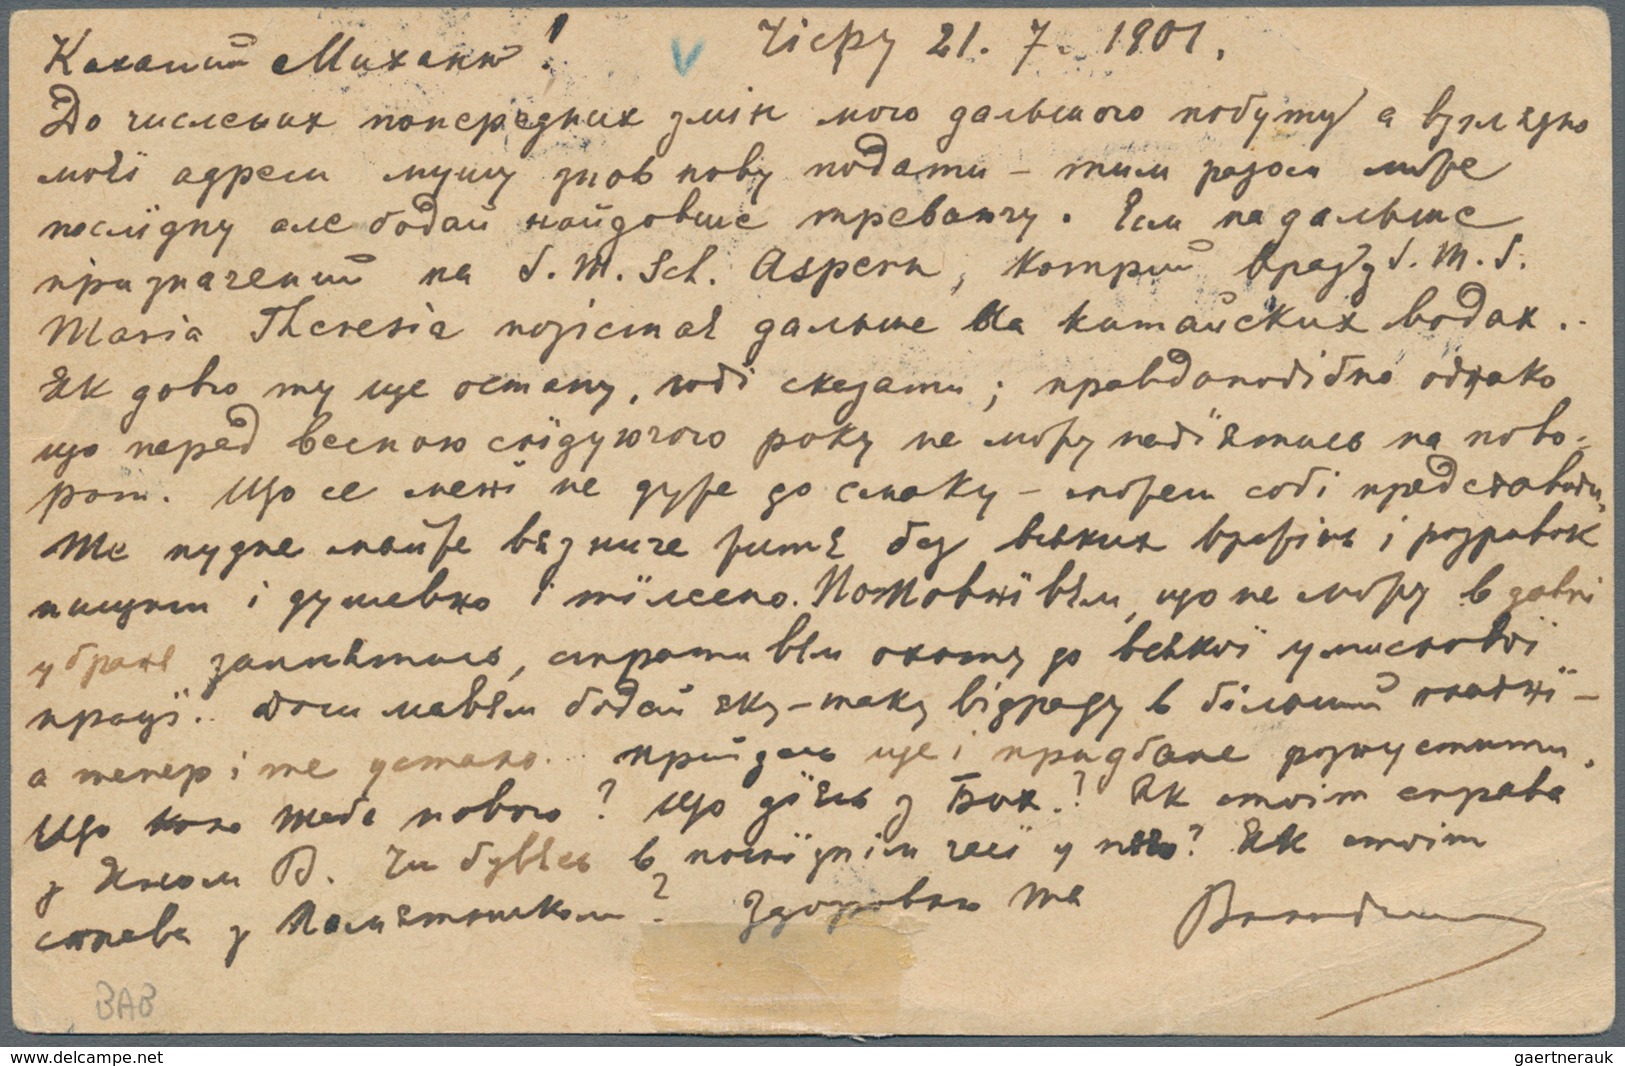 Коханий Миханю!
Чіфу 21. 7. 1901.
До числених попередних змін мого дальшого побуту а взглядно
моєї адреси мушу знов нову подати – тим разом може
послїдну але бодай найдовше треваючу. Єсм на дальше
призначений на S. M. Sch. Aspern, котрий враз з S. M. S.
Maria Theresia позістає дальше на китайских водах..
Як довго ту ще остану, годі сказати; правдоподібно однако
що перед весною слїдуючого року не можу надїятись на пово-
рот. Що се менї не дуже до смаку – можеш собі представити.
Те нудне майже вязниче житє без всяких вражінь і розривок
нищит і душевно і тїлесно. Потовстїв єм, що не можу в давні
убраня запнятись, стратив єм охоту до всякої умислової
працї.. Доси мавєм бодай яку-таку відраду в більшій платнї –
а тепер і те устало... прийдесь ще і придбане розпустити.
Що коло тебе нового? Що дїєсь з Бих.? Як стоїт справа
з Яком В. Чи бувєсь в послїднім часї у него? Як стоїт
справа з Памятником? Здоровлю тя
Володимир
BAB
www.delcampe.net
gaertnerauk